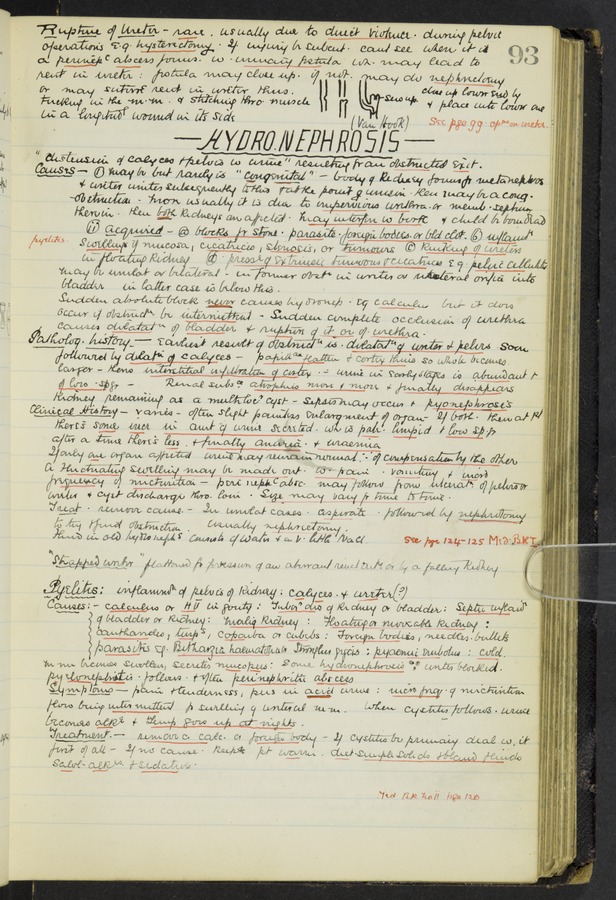 93
Rupture of Ureter - rare. usually due to direct violence. during pelvic
operations e.g. hysterectomy. If injury be subcut. cant see when it is
a perineph c abscess forms. w. urinary fistula wh. may lead to
rent in ureter: fistula may close up. if not. may do nephrectomy
or may suture rent in ureter thus.
close up lower end by
tucking in the m.m. & stitching thro muscle
sew up
& place into lower one
in a longitud l wound in its side
(Van Hook)
See pge 99. opn on ureter.
HYDRONEPHROSIS
"distension of calyces & pelvis w urine" resulting fr an obstructed exit.
Causes - (i) may be but rarely is "congenital" - body of Kidney forms fr metanephros
& ureter unites subsequently to this & at the point of union there may be a cong.
obstruction. More usually it is due to impervious urethra or memb. septum
therein. then both Kidneys are affected. may interfere w birth & child be born dead
(ii) acquired - (a) blocks fr stone. parasites. foreign bodies. or bld clot. (b) inflamt
pyelitis.
swelling of mucosa, cicatrices, stenosis, or tumours (c) Kinking of ureters
in floating Kidney (d) press e of extrinsic tumours or cicatrices e.g. pelvic cellulitis
may be unilat or bilateral - in former obst n in ureter or ureteral orifice into
bladder in latter case is below this.
Sudden absolute block never causes hydroneph. eg calculus but it does
occur if obstruct n be intermittent - Sudden complete occlusion of urethra
causes dilatat n of bladder & rupture of it or of urethra.
Patholog. history - Earliest result of obstruct n is. dilatat n of ureter & pelvis soon
followed by dilat n of calyces - papillae flatten & cortex thins so whole becomes
larger - Renal subs ce atrophies more & more & finally disappears
of low. sp gr -
Kidney remaining as a multiloc r cyst - Sepsis may occur & pyonephrosis
Clinical History - varies - often slight painless enlargement of organ - If both. then at 1st
there's some incr in amt of urine secreted. wh is pale. limpid & low sp gr
after a time there's less. & finally anuria. & uraemia
If only one organ affected urine may remain normal ∵ of compensation by the other
A fluctuating swelling may be made out. w. pain. vomiting & incrd
frequency of micturition - perinephc absc. may follow from ulceratn of pelvis or
ureter & cyst discharge thro. loin. Size may vary fr time to time.
Treat. remove cause - In unilat cases - aspirate. followed by nephrotomy
to try & find obstruction. usually nephrectomy.
Fluid in old hydroneph s consists of water & a v. little NaCl
See pge 124-125 Mid. B.K I.
"Strapped ureter" flattened fr pressure of an aberrant renal art or by a falling Kidney
Pyelitis: inflammn of pelvis of Kidney: calyces. & ureter (?)
Causes: - calculus or in gouty: Tuber dis of Kidney or bladder: Septic inflamn
of bladder or Kidney: Malig Kidney: Floating or movable Kidney:
Cantharides, turps, copaiba or cubebs: Foreign bodies, needles. bullets
parasites eg. Bilharzia haematobia Strongylus gigas: pyaemic embolus: cold.
m m becomes swollen, secretes mucopus: Some hydronephrosis as ureter blocked.
pyelonephritis. follows. & often perinephritic abscess
Symptoms - pain & tenderness, pus in acid urine: incr freq. of micturition
flow being intermittent fr swelling of ureteral m.m. When cystitis follows. urine
becomes alkn & temp goes up at nights.
Treatment. - remove a calc. or foreign body - If cystitis be primary deal w. it
first of all - If no cause. Keep pt warm. diet simple solids & bland fluids
Salol - alkn & sedative.